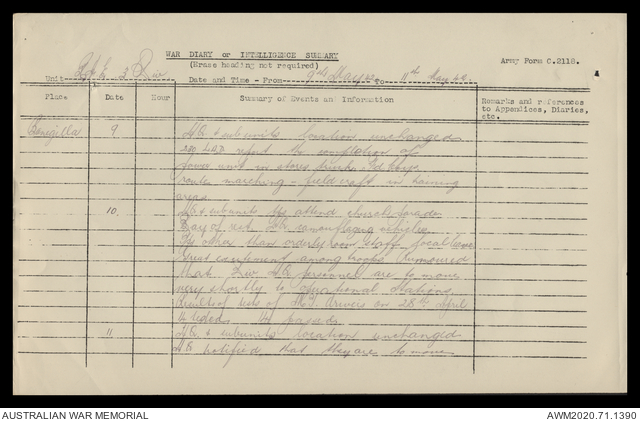 WAR DIARY or INTELLIGENCE SUMMARY
(Erase heading not required)
Army Form C.2118.
Unit
Date and Time - From 9th May 42 To 11th May 42
Place Date Hour Summary of Events and Information Remarks and references to Appendices, Diaries, etc.
Bonegilla 9 H.Q. & subunits location unchanged
report the completion of
power unit in stores truck
route marching - fieldcraft in training
areas
10. H.Q. & subunits attend church parade
Day of rest. camouflaging vehicles
other than orderly room staff local leave
Great excitement among troops Rumoured
that Div H.Q. personnel are to move
very shortly to operational stations
Results of tests of M.T. Drivers on 28th April
14 tested 14 passed
11 H.Q. & subunits location unchanged
H.Q notified that they are to move
AUSTRALIAN WAR MEMORIAL
AWM2020.71.1390